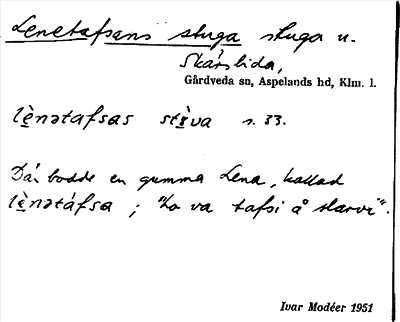 Lenetafsans stuga stuga u.
Skärslida,
Gårdveda sn, Aspelands hd, Klm. l.
lènətafsas stùva s. 33.
Där bodde en gumma Lena, kallad
lènətáfsa ; "ho va tafsi å slarvi".
Ivar Modéer 1951